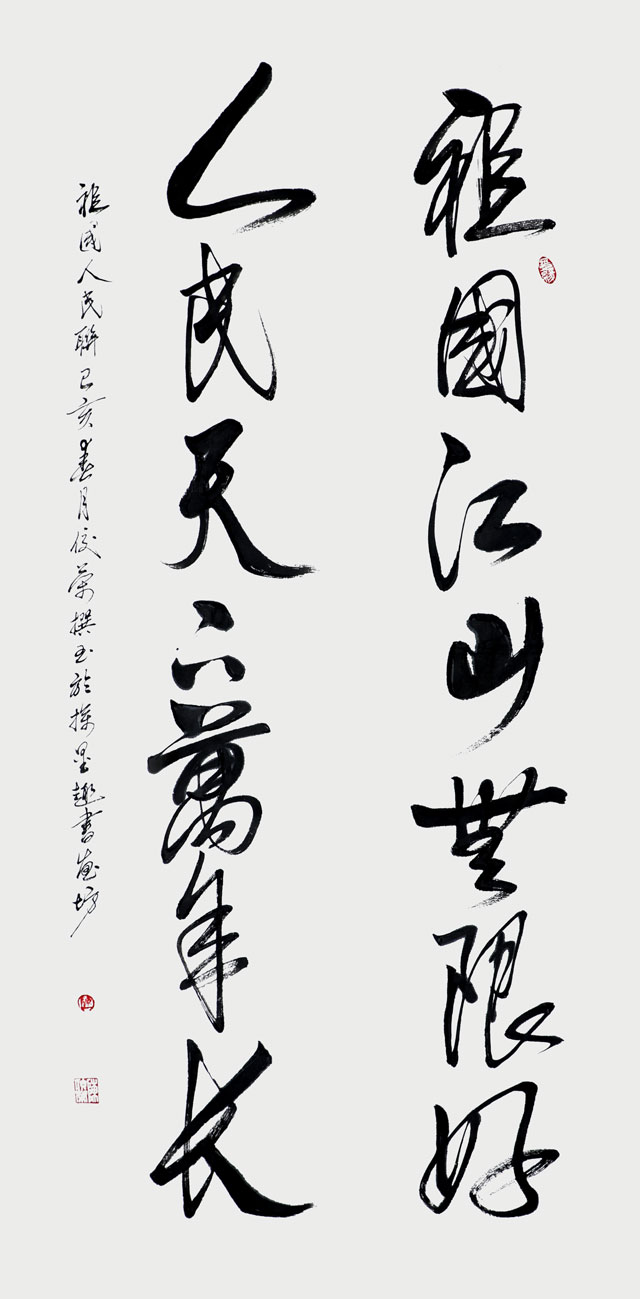 祖國江山無限好
人民天下萬年長
祖國人民聯己亥春月俊榮撰書於探墨趣書畫坊